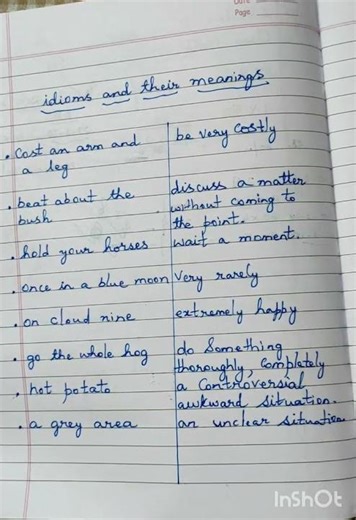 Date
Page
idioms and their meanings
• Cost an arm and
a leg
be very costly
• beat about the
bush
discuss a matter
without coming to
the point.
• hold your horses
wait a moment.
• once in a blue moon
very rarely
• on cloud nine
extremely happy
• go the whole hog
do something
thoroughly, completely
• hot potato
a controversial
awkward situation.
• a grey area
an unclear situation.
InShOt